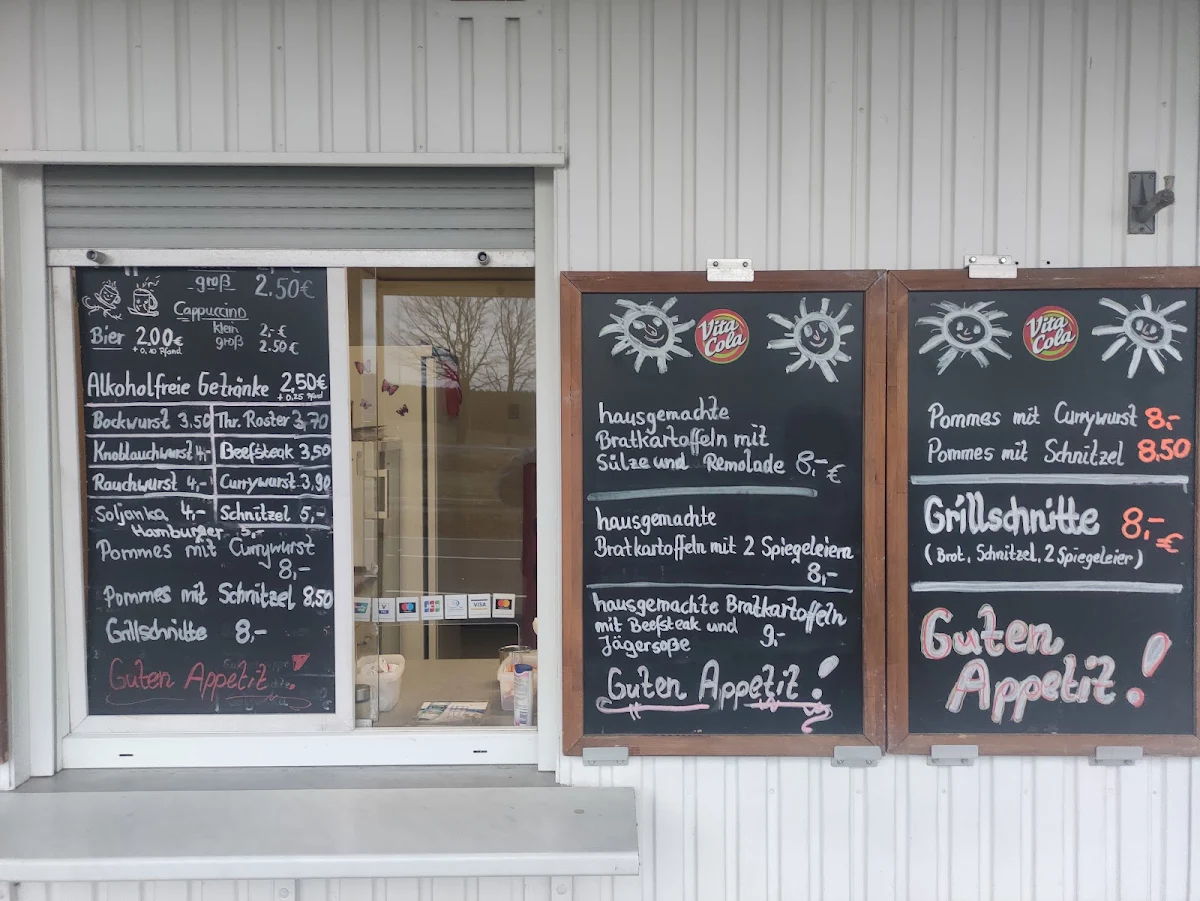 groß 2.50€
Cappuccino
klein 2,-€
groß 2.50€
Bier 2.00€
+0,10 Pfand
Alkoholfreie Getränke 2,50€
+0.25 Pfand
Bockwurst 3,50 Thr. Roster 3,70
Knoblauchwurst 4,- Beefsteak 3,50
Rauchwurst 4,- Currywurst 3,90
Soljanka 4,- Schnitzel 5,-
Hamburger 5,-
Pommes mit Currywurst
8,-
Pommes mit Schnitzel 8,50
Grillschnitte 8,-
Guten Appetit !
VISA
Vita
Cola
hausgemachte
Bratkartoffeln mit
Sülze und Remolade 8,-€
hausgemachte
Bratkartoffeln mit 2 Spiegeleiern
8,-
hausgemachte Bratkartoffeln
mit Beefsteak und
Jägersoße 9,-
Guten Appetit !
Vita
Cola
Pommes mit Currywurst 8,-
Pommes mit Schnitzel 8,50
Grillschnitte 8,-€
( Brot, Schnitzel, 2 Spiegeleier )
Guten
Appetit !